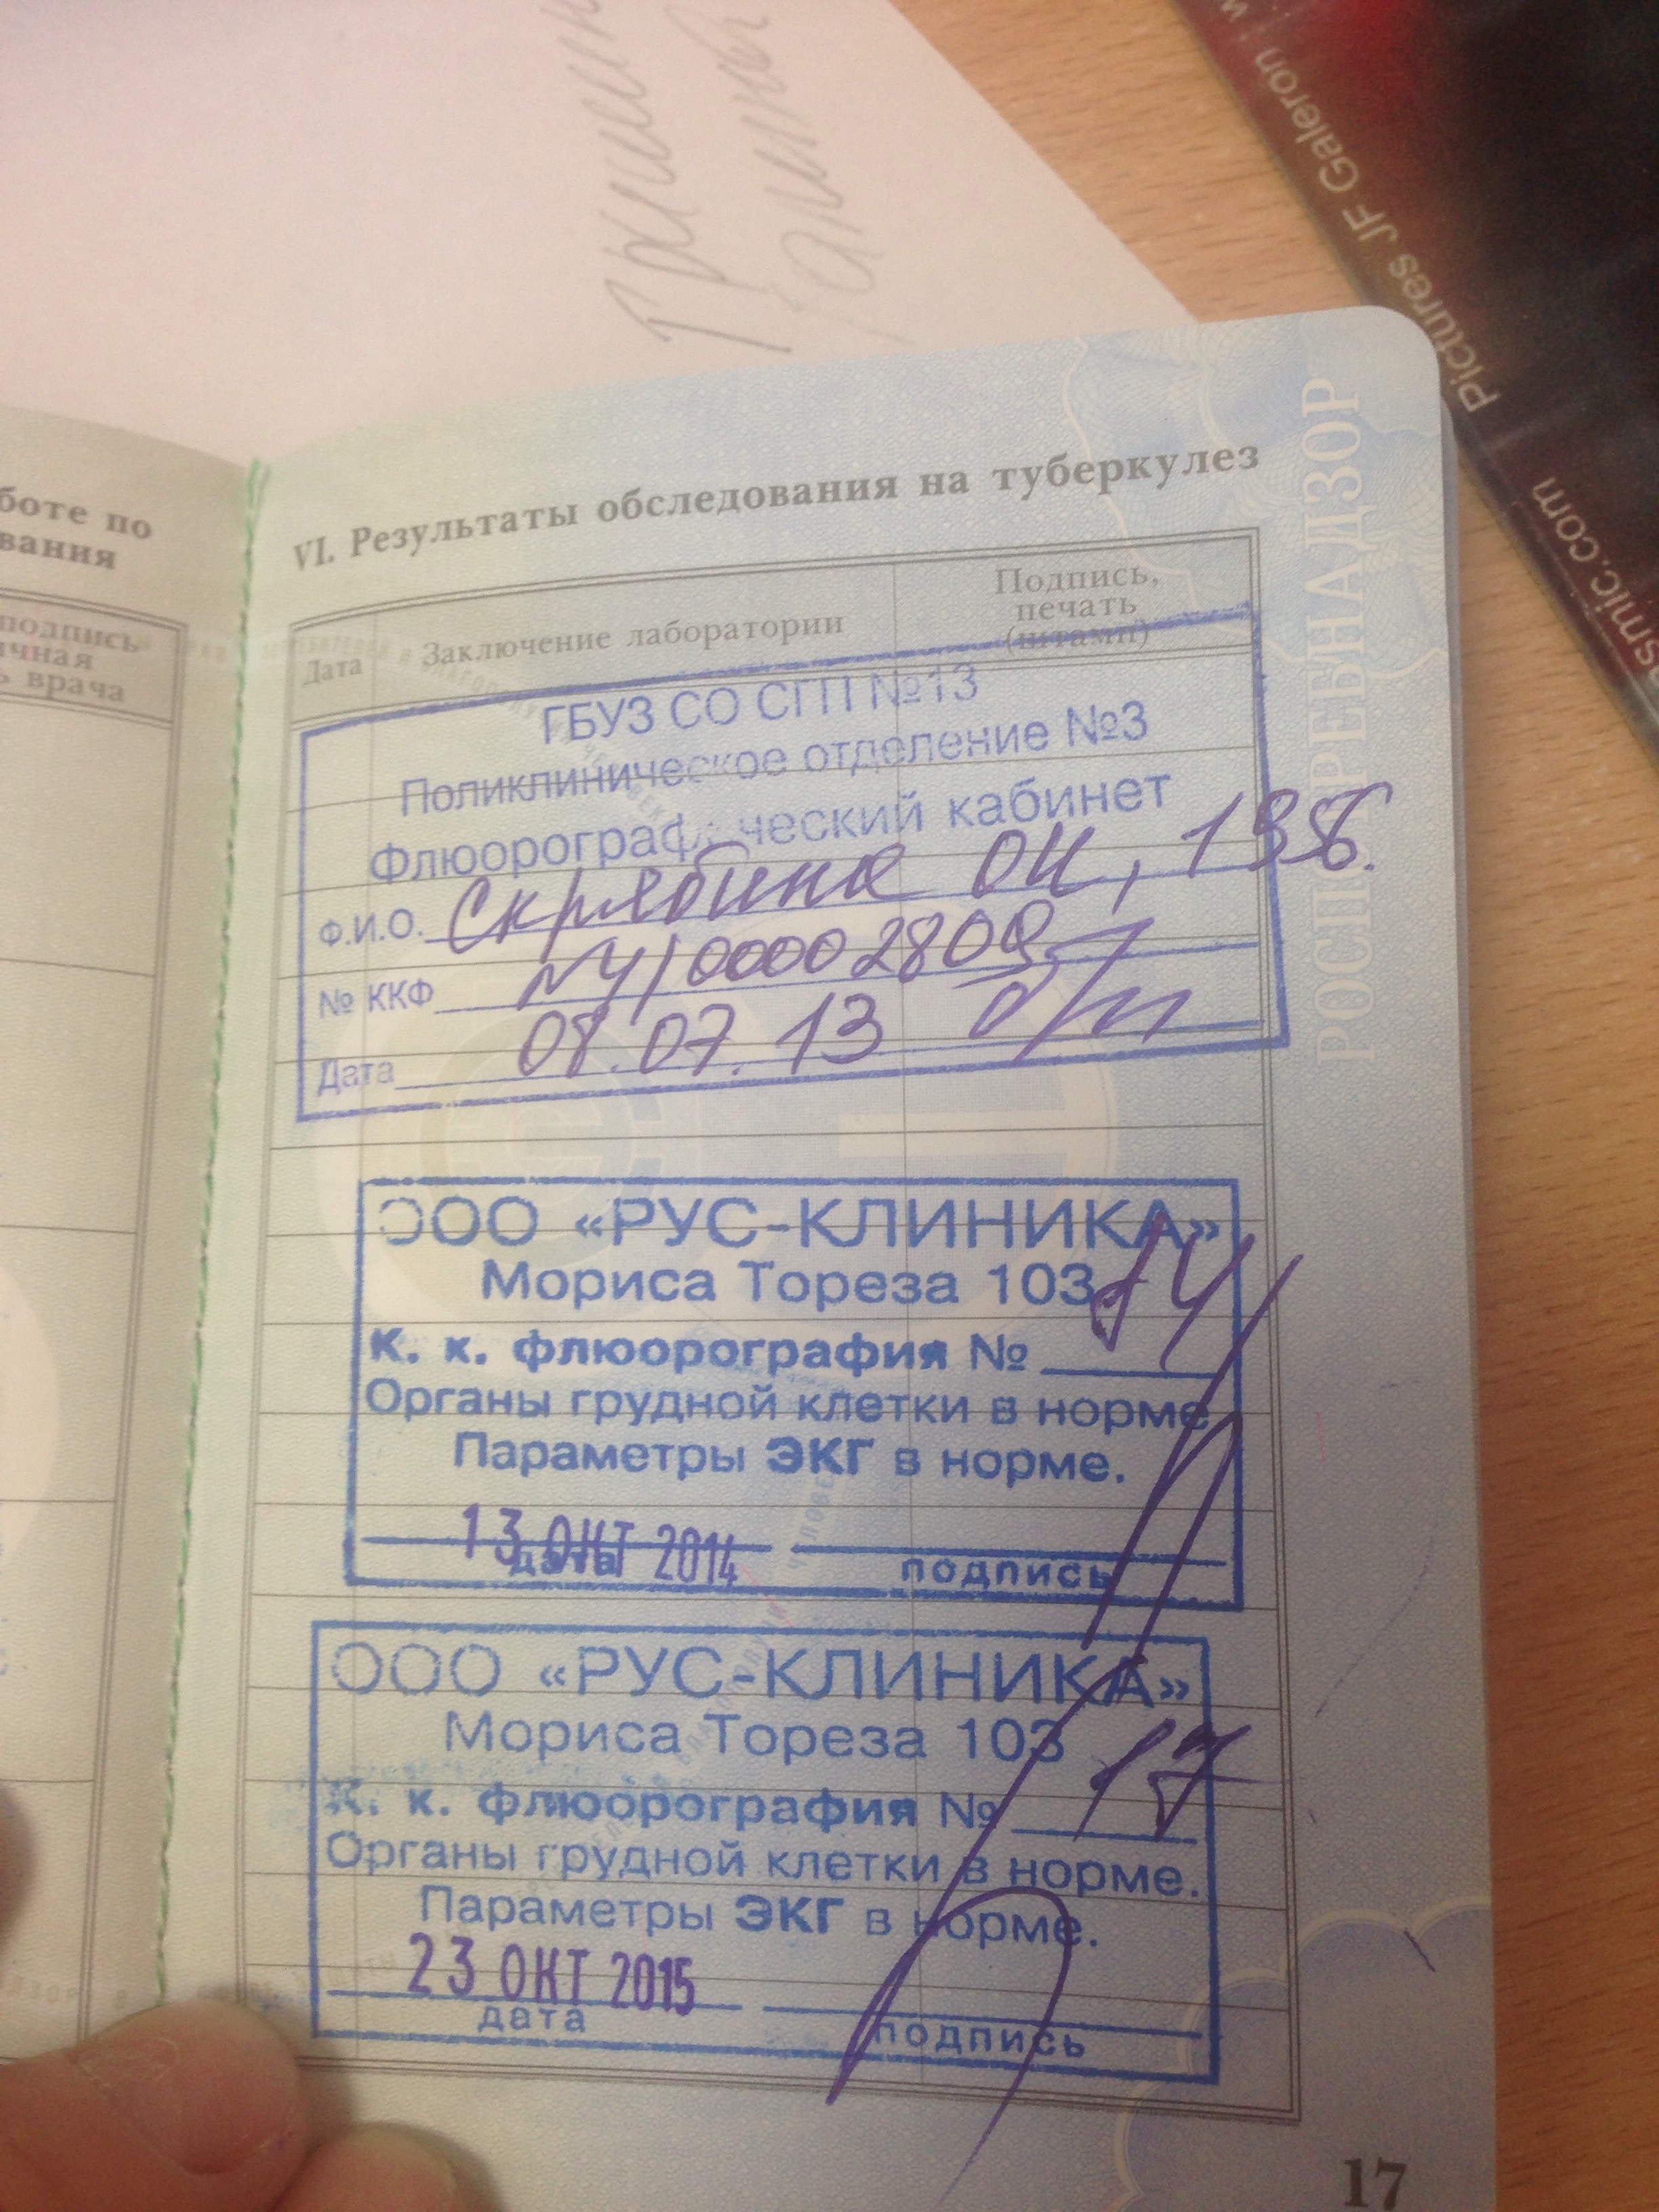 Pictures JF Galeron
боте по
вания
подпись
врача
VI. Результаты обследования на туберкулез
Дата
Заключение лаборатории
Подпись,
печать
(штамп)
РОСПОТРЕБНАДЗОР
ГБУЗ СО СГП №13
Поликлиническое отделение №3
Флюорографический кабинет
Ф.И.О. Скрябина ОН,
№ ККФ 100002809
Дата 08.07.13
ООО «РУС-КЛИНИКА»
Мориса Тореза 103
К. к. флюорография № 14
Органы грудной клетки в норме
Параметры ЭКГ в норме.
13 ОКТ 2014
дата подпись
ООО «РУС-КЛИНИКА»
Мориса Тореза 103
К. к. флюорография № 17
Органы грудной клетки в норме.
Параметры ЭКГ в норме.
23 ОКТ 2015
дата подпись
17